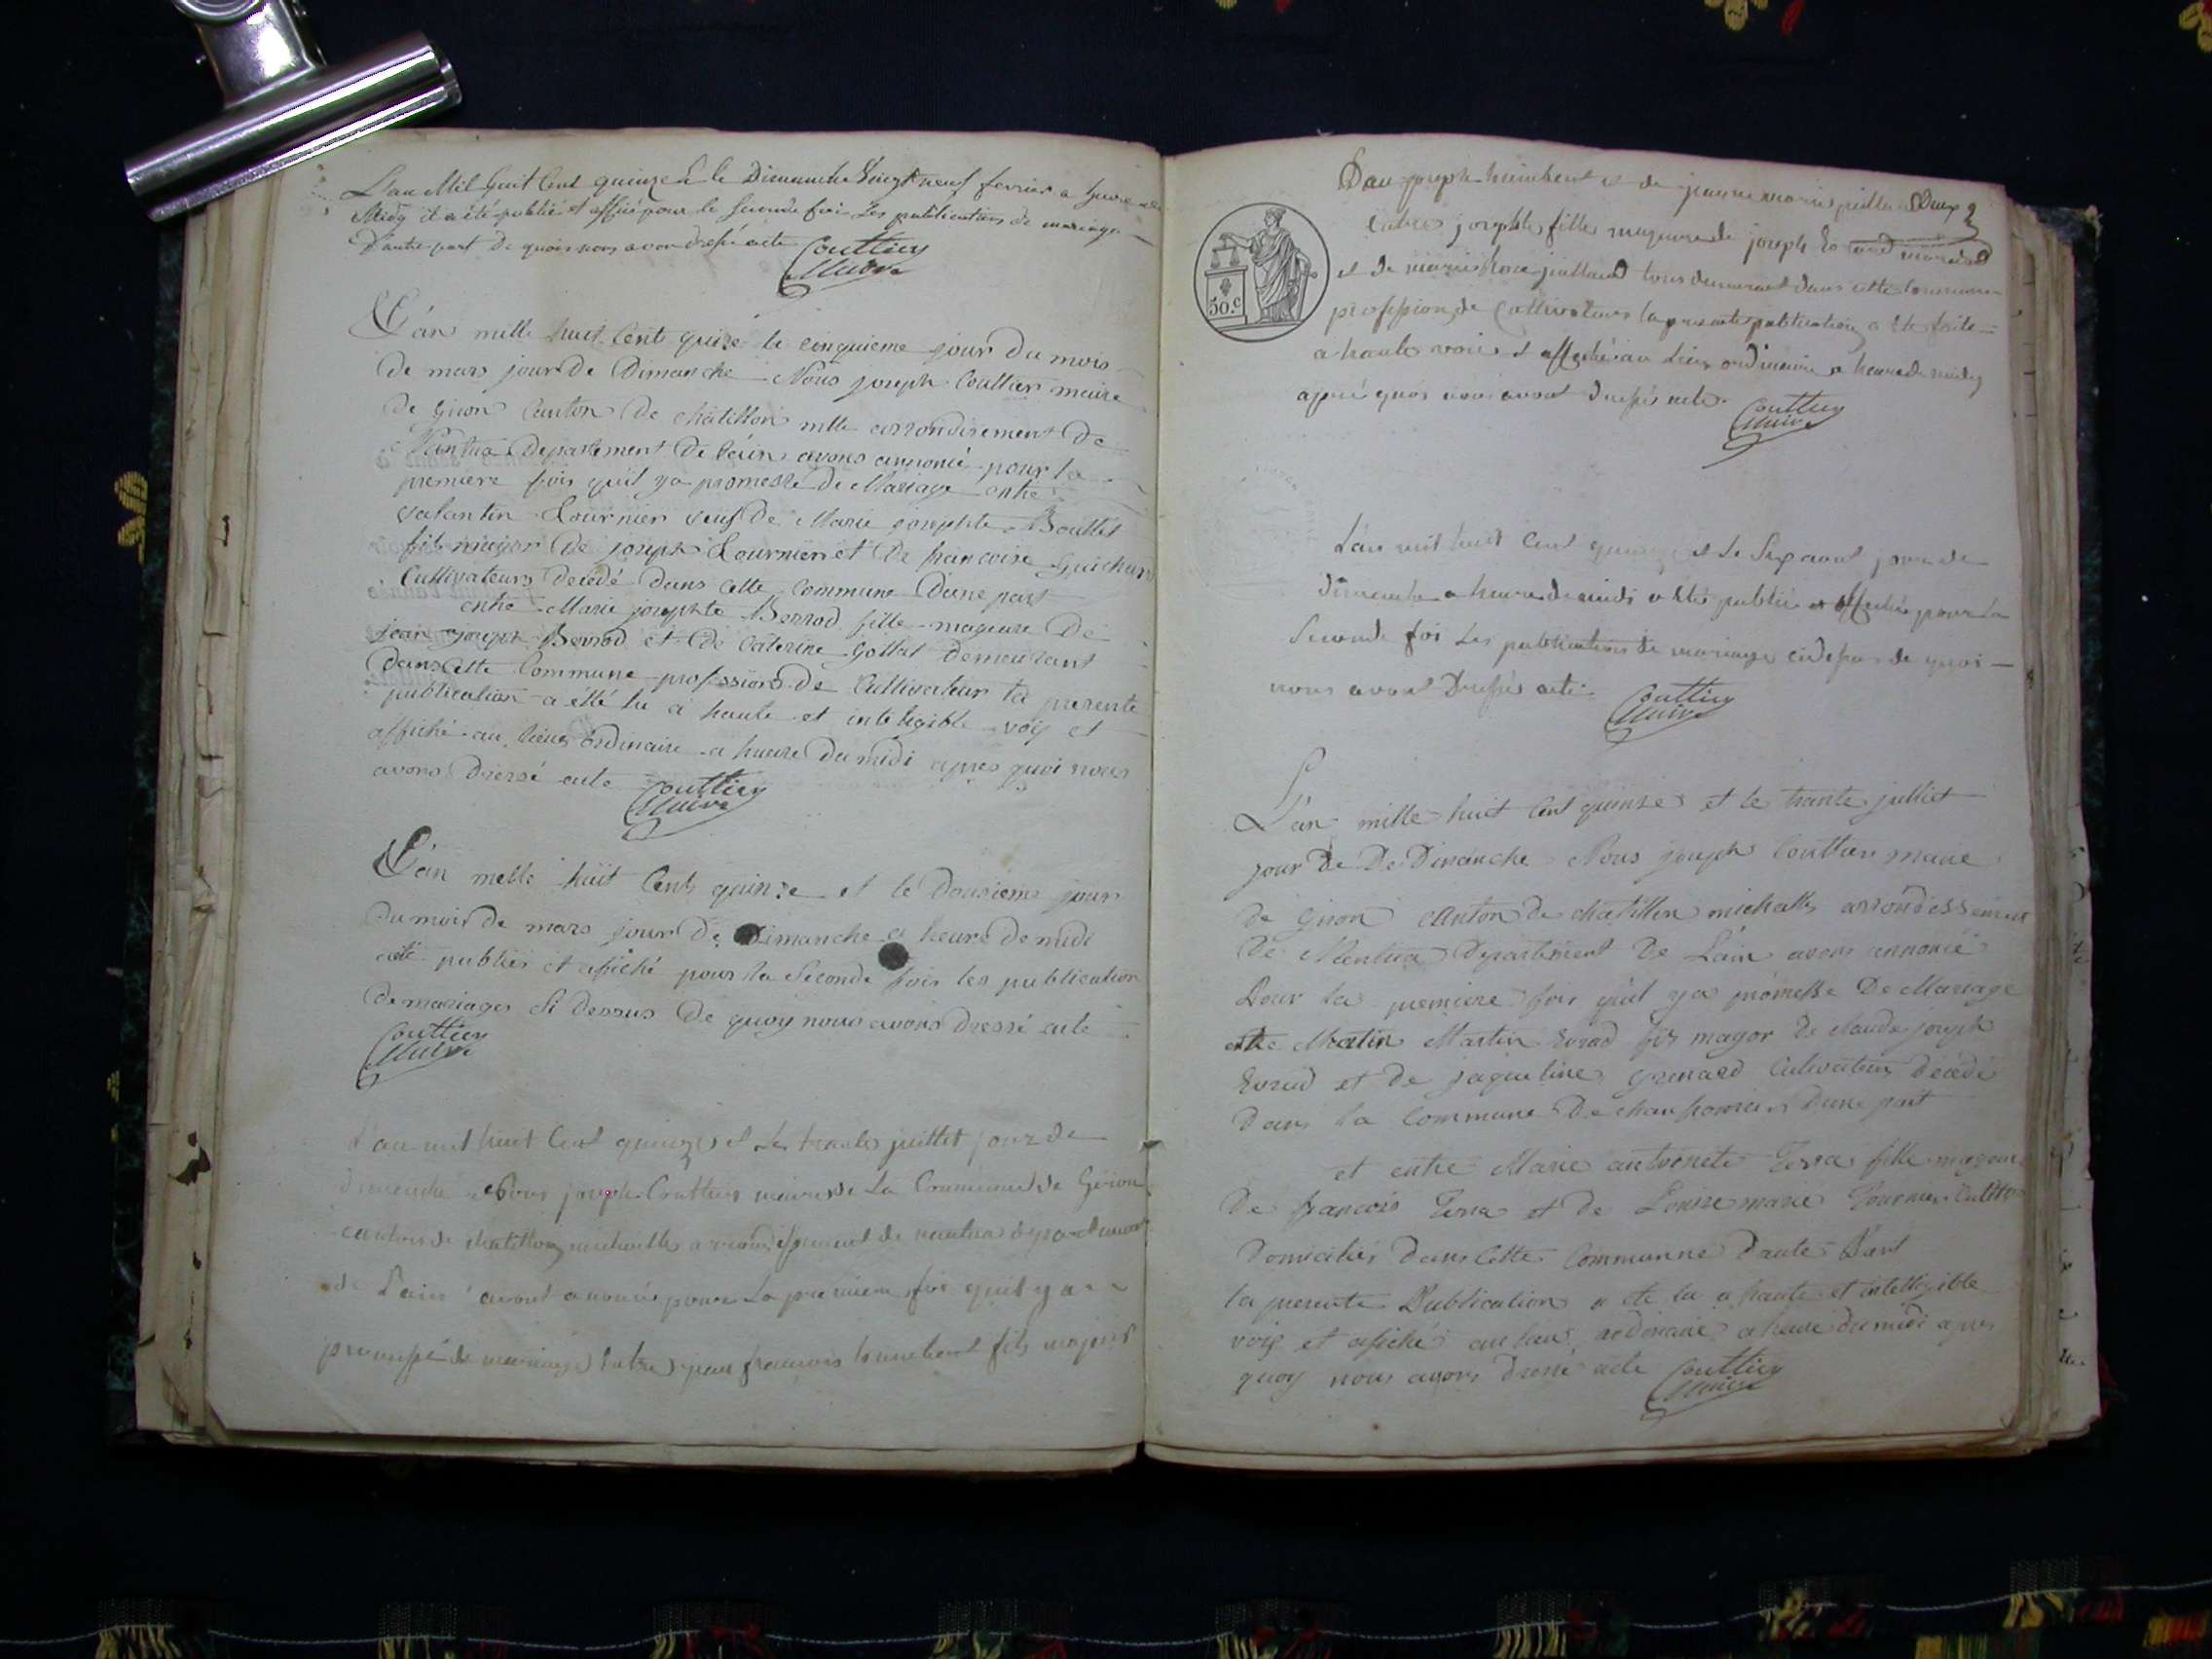 L'an Mil huit Cent quinze & le Dimanche Vingt neuf fevrier a heure de
Midy il a été publié et affiché pour la seconde fois Les publications de mariage
D'autre part De quoi nous avon dressé acte Couttier
Maire
L'an mille huit Cent quize le cinquieme jour du mois
De mars jour De Dimanche Nous joseph Couttier maire
De Giron Canton De chatillon mlle arrondisement De
Nantua Departement De l'ain avons annoncé pour la
premiere fois qu'il ya promesse De Mariage entre
valantin Tournier veuf De Marie josephte Bouttet
fils major De joseph Tournier et De francoise Guichon
Cultivateurs Decédé dans cette Commune D'une part
entre Marie josephte Berrod fille mageure De
jean joseph Berrod et De Caterine Gottet Demeurant
Dans cette Commune profession De Cultivateur la presente
publication a été lu a haute et inteligible voiy et
affiché au lieux ordinaire a heure Du midi apres quoi nous
avons Dressé acte Couttier
Maire
L'an mille huit Cent quinze et le Dousieme jour
Du mois De mars jour De Dimanche a heure De midi
été publiés et afiché pour la Seconde fois les publication
De mariages Si Dessus De quoy nous avons Dressé acte
Couttier
Maire
L'an mil huit Cent quinze et le trante juillet jour de
dimenche Nous joseph Couttier maire de La Commune de Giron
canton de chatillon michaille arrondissement de nantua departement
de L'ain avont anoncé pour La premiere fois quil y a
promesse de mariage Entre jean francois humbert fils majeur
D'au joseph humbert et de jeanne marie juillard Deux
Entre josephte fille mageure de joseph Evrard
et de marie juilland tous demeurant dans cette Commune
profession de Cultivateurs la presente publication a été faite
a haute voix et affiché au Lieu ordinaire a heure de midy
aprés quoi nous avont dressés acte. Couttier
Maire
50.c
L'an mil huit Cent quinze et Le Six aout jour de
dimenche a heure de midi a Été publié et affiché pour La
Seconde fois Les publications de mariage cidessus de quoi
nous avont Dressés acte. Couttier
Maire
L'an mille huit Cent quinze et le trante julliet
jour De De Dimanche Nous joseph Couttier maire
De Giron Canton De chatillon michalle arrondissement
De Nantua Departement De L'ain avons annoncé
Pour la premiere fois qu'il ya promesse De Mariage
entre Martin Evrad fis mayor De Claude joseph
Evrad et De jaqueline Grenard Cultivateurs Décédé
Dans la Commune De chanfromier D'une part
et entre Marie antoinete Terra fille mageure
De francois Terra et De Louise marie Tournier Cultiv
Domiciliés Dans Cette Communne D'aute Part
la presente Publication a été lu a haute et intelligible
voiy et afiché au lieu ordinaire a heure Du midi apres
quoy nous avons Dressé acte Couttier
Maire